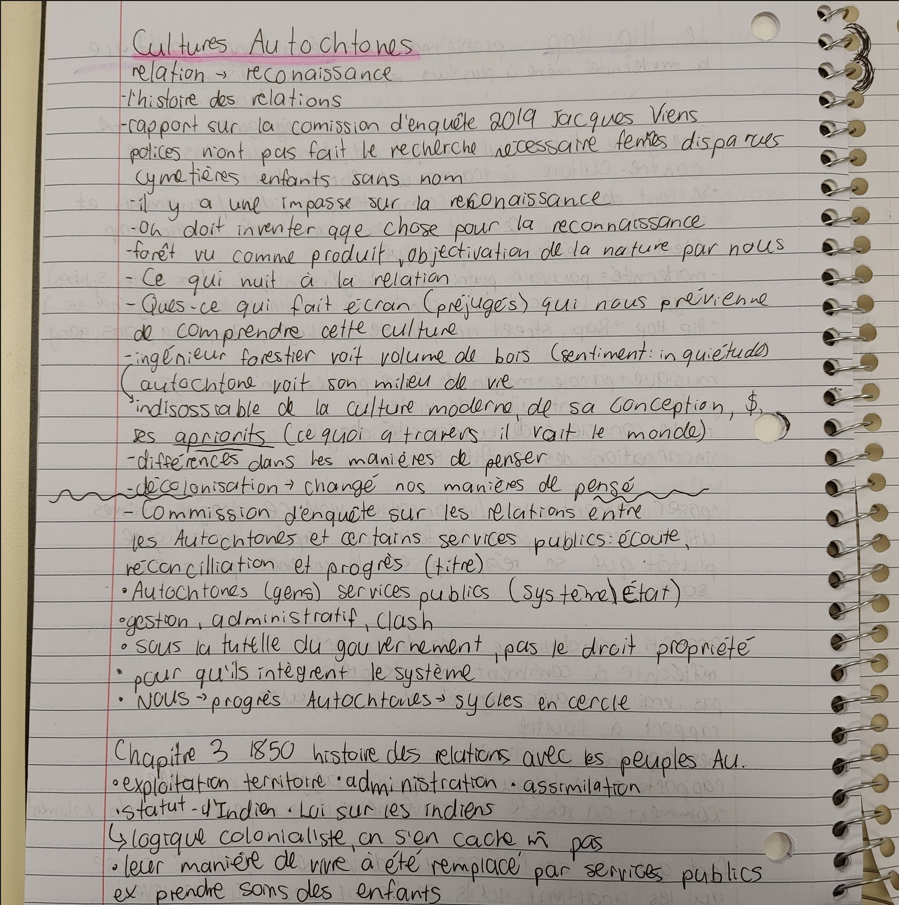 Cultures Autochtones
relation → reconaissance
-l'histoire des relations
-rapport sur la comission d'enquête 2019 Jacques Viens
polices n'ont pas fait le recherche nécessaire femmes disparues
cymetières enfants sans nom
-il y a une impasse sur la reconaissance
-on doit inventer qqe chose pour la reconnaissance
-forêt vu comme produit, objectivation de la nature par nous
- Ce qui nuit à la relation
- Ques-ce qui fait écran (préjugés) qui nous prévienne
de comprendre cette culture
-ingénieur forestier voit volume de bois (sentiment: inquiétude)
autochtone voit son milieu de vie
indisossiable de la culture moderne, de sa conception, $,
ses apriorits (ce quoi a travers il voit le monde)
-différences dans les manières de penser
-décolonisation → changé nos manières de pensé
- Commission d'enquête sur les relations entre
les Autochtones et certains services publics: écoute,
réconcilliation et progrès (titre)
• Autochtones (gens) services publics (système) État)
•gestion, administratif, clash
• sous la tutelle du gouvernement, pas le droit propriété
• pour qu'ils intègrent le système
• NOUS → progrès Autochtones → sycles en cercle
Chapitre 3 1850 histoire des relations avec les peuples Au.
•exploitation territoire •administration • assimilation
•statut - d'Indien • Loi sur les indiens
↳ logique colonialiste, on s'en cache pas
•leur manière de vivre à été remplacé par services publics
ex prendre soins des enfants